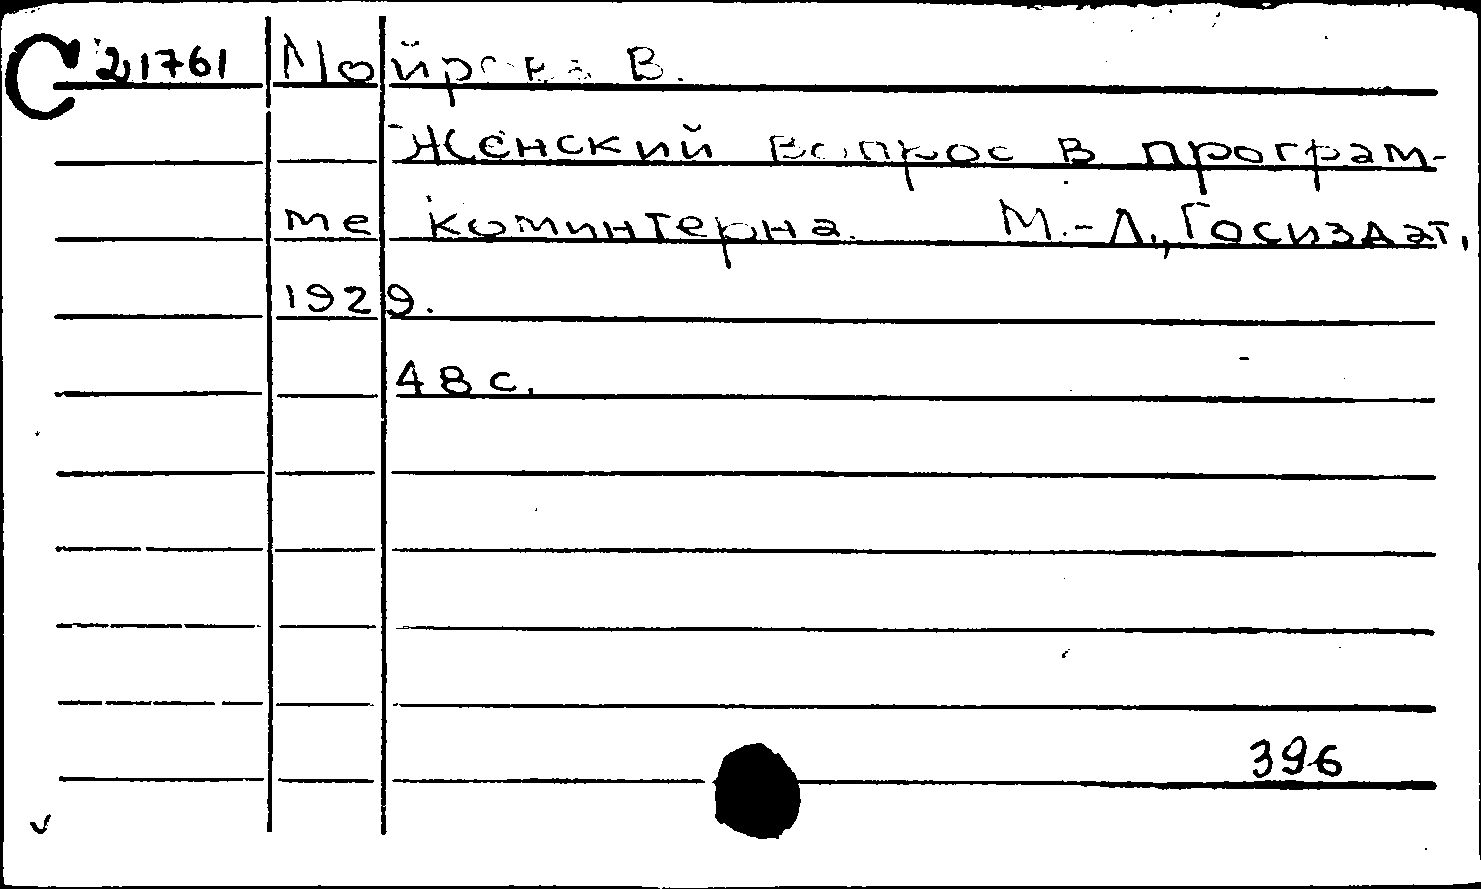 С 21761 Мойрова В.
Женский вопрос в програм-
ме коминтерна. М.-Л., Госиздат,
1929.
48 с.
396